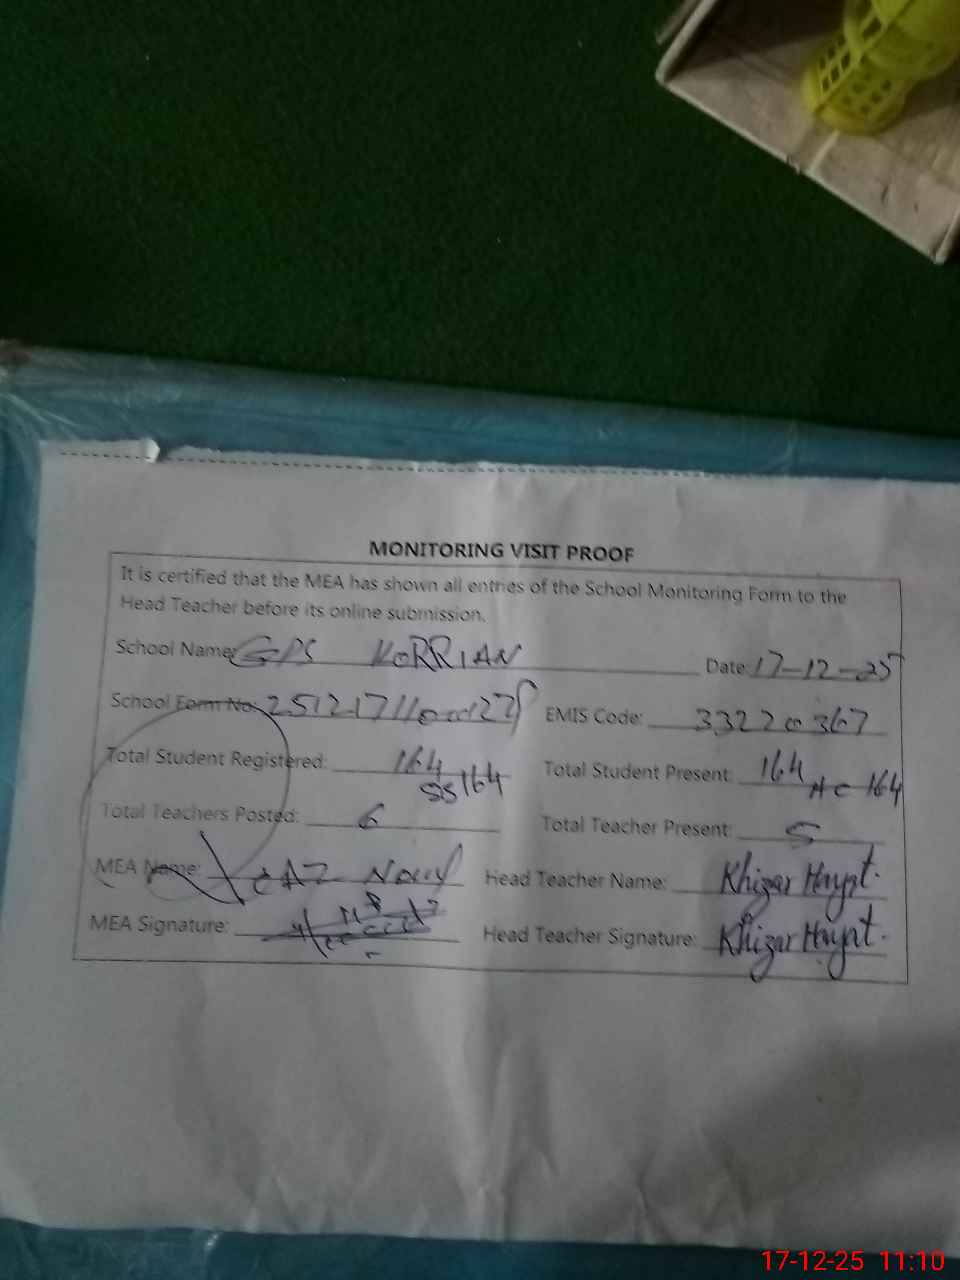 MONITORING VISIT PROOF
It is certified that the MEA has shown all entries of the School Monitoring Form to the
Head Teacher before its online submission.
School Name: GPS KORRIAN Date: 17-12-25
School Form No: EMIS Code: 33220367
Total Student Registered: 164 Total Student Present: 164
SS 164 AC 164
Total Teachers Posted: 6 Total Teacher Present: 5
MEA Name: Head Teacher Name: Khizar Hayat.
MEA Signature: Head Teacher Signature: Khizar Hayat.
17-12-25 11:10